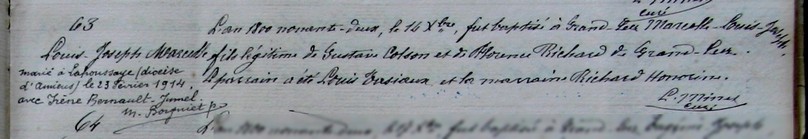 curé
63
L'an 1800 nonante-deux, le 14 Xbre, fut baptisé à Grand-Leez Marcelle-Louis-Joseph.
Louis Joseph Marcelle fils légitime de Gustave Colson et de Florence Richard de Grand-Leez.
Le parrain a été Louis Tasiaux et la marraine Richard Honorine.
marié à Lahoussaye (diocèse
d'Amiens) le 23 février 1914
avec Irène Bernault-Jumel
M. Borguiet p.
L. Minet
curé
64
L'an 1800 nonante-deux, le 17 Xbre fut baptisé à Grand-Leez